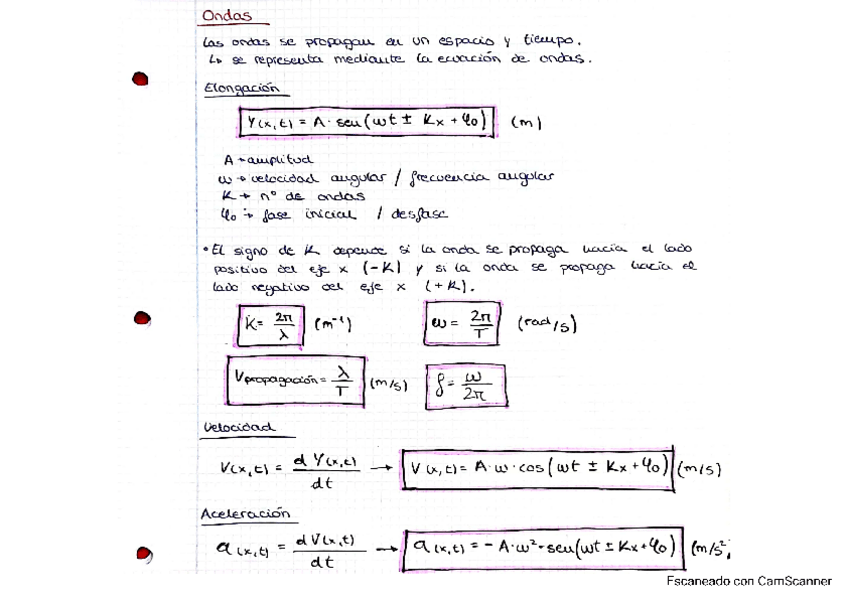 Ondas
Las ondas se propagan en un espacio y tiempo.
↳ se representa mediante la ecuación de ondas.
Elongación
Y(x,t) = A · sen(ωt ± Kx + φ0) (m)
A → amplitud
ω → velocidad angular / frecuencia angular
K → nº de ondas
φ0 → fase inicial / desfase
• El signo de K depende si la onda se propaga hacia el lado
positivo del eje x (-K) y si la onda se propaga hacia el
lado negativo del eje x (+K).
K = 2π/λ (m⁻¹) ω = 2π/T (rad/s)
Vpropagación = λ/T (m/s) f = ω/2π
Velocidad
V(x,t) = d Y(x,t)/dt → V(x,t) = A·ω·cos(ωt ± Kx + φ0) (m/s)
Aceleración
a(x,t) = dV(x,t)/dt → a(x,t) = -A·ω²·sen(ωt ± Kx + φ0) (m/s²)
Escaneado con CamScanner